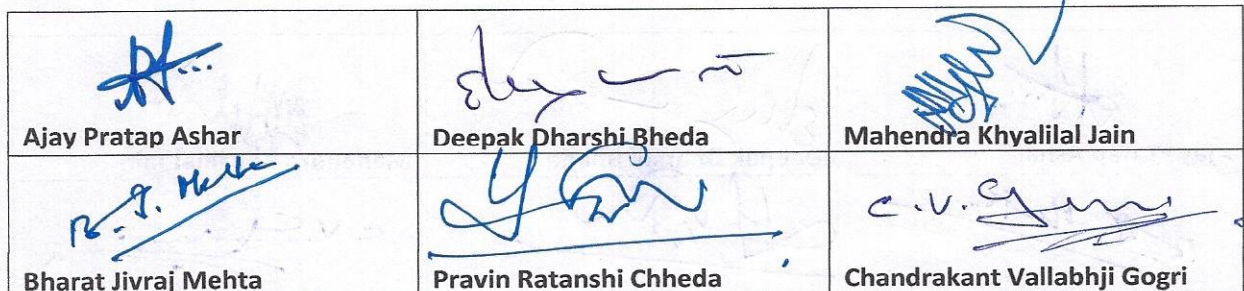 Ajay Pratap Ashar
Deepak Dharshi Bheda
Mahendra Khyalilal Jain
B. J. Mehta
C.V. Gogri
Bharat Jivraj Mehta
Pravin Ratanshi Chheda
Chandrakant Vallabhji Gogri